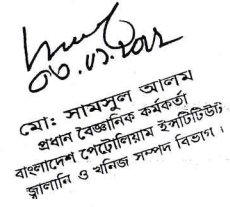 মো: সামসুল আলম
প্রধান বৈজ্ঞানিক কর্মকর্তা
বাংলাদেশ পেট্রোলিয়াম ইন্সটিটিউট
জ্বালানি ও খনিজ সম্পদ বিভাগ।